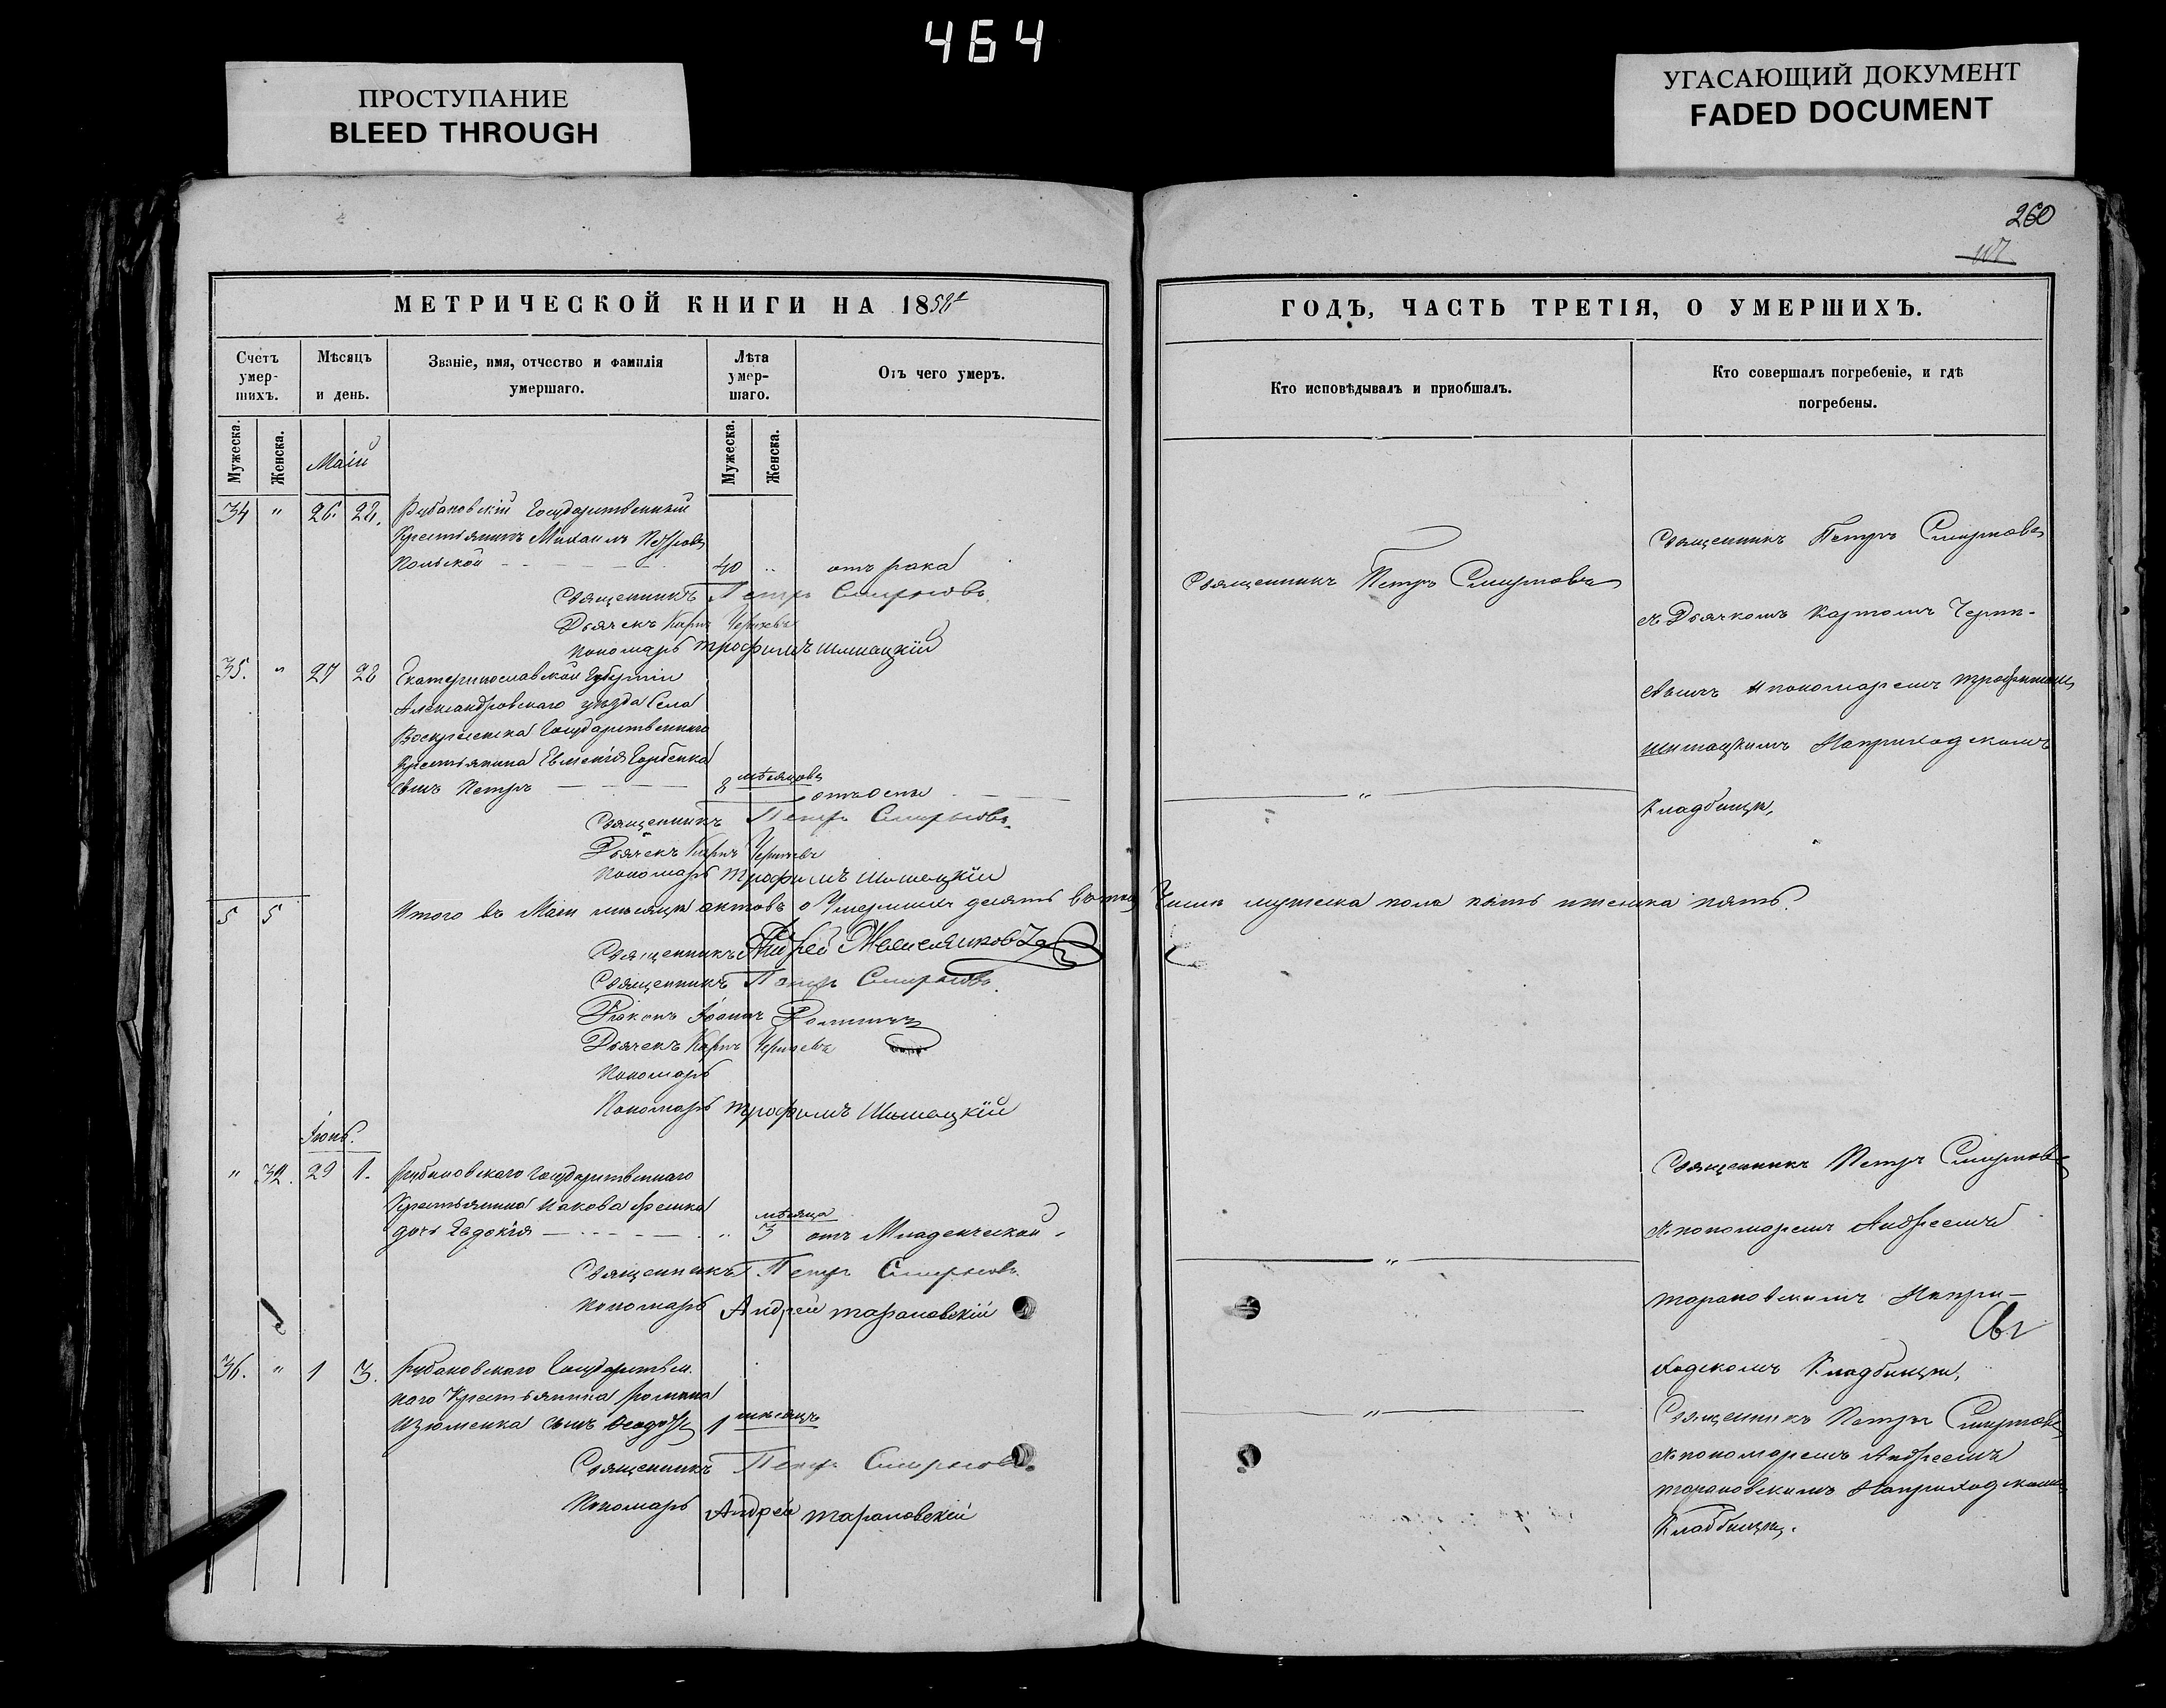 464
ПРОСТУПАНИЕ
BLEED THROUGH
УГАСАЮЩИЙ ДОКУМЕНТ
FADED DOCUMENT
260
МЕТРИЧЕСКОЙ КНИГИ НА 1858
ГОДЪ, ЧАСТЬ ТРЕТІЯ, О УМЕРШИХЪ.
Счетъ умер-шихъ.
Мѣсяцъ и день.
Званіе, имя, отчество и фамилія умершаго.
Лѣта умер-шаго.
Отъ чего умеръ.
Кто исповѣдывалъ и пріобщалъ.
Кто совершалъ погребеніе, и гдѣ погребены.
Мужеска. Женска.
Маій
Мужеска. Женска.
34 " 26. 28. Рубановскій Государственный
Крестьянинъ Михаилъ Петровъ
40 .. отъ рака
Священникъ Петръ Смирновъ
Дьячекъ Карпъ
Пономарь Трофимъ Шишацкій
Священникъ Петръ Смирновъ
Священникъ Петръ Смирновъ
съ Дьячкомъ Карпомъ Черни-
евымъ и пономаремъ Трофимомъ
Шишацкимъ на приходскомъ
Кладбищѣ.
35. " 27 28 Екатеринославской Губерніи
Александровскаго уѣзда Села
Воскресенка Государственнаго
Крестьянина Евменія Горбенка
сынъ Петръ 8 мѣсяцовъ отъ оспы
Священникъ Петръ Смирновъ
Дьячекъ Карпъ
Пономарь Трофимъ Шишацкій
5 5 Итого въ Маіи мѣсяцѣ актовъ о Умершихъ десять въ томъ Числѣ мужеска пола пять и женска пять.
Священникъ Андрей
Священникъ Петръ Смирновъ
Діаконъ Іоаннъ
Дьячекъ Карпъ
Пономарь
Пономарь Трофимъ Шишацкій
Іюнь.
" 32. 29 1. Рубановскаго Государственнаго
Крестьянина Іакова
дочь Евдокія " 3 мѣсяца отъ Младенческой
Священникъ Петръ Смирновъ
Пономарь Андрей Тарановскій
Священникъ Петръ Смирновъ
съ пономаремъ Андреемъ
Тарановскимъ на при-
ходскомъ Кладбищѣ.
36. " 1 3. Рубановскаго Государствен-
наго Крестьянина Романа
Изюменка сынъ 1 мѣсяцъ
Священникъ Петръ Смирновъ
Пономарь Андрей Тарановскій
Священникъ Петръ Смирновъ
съ пономаремъ Андреемъ
Тарановскимъ на приходскомъ
Кладбищѣ.